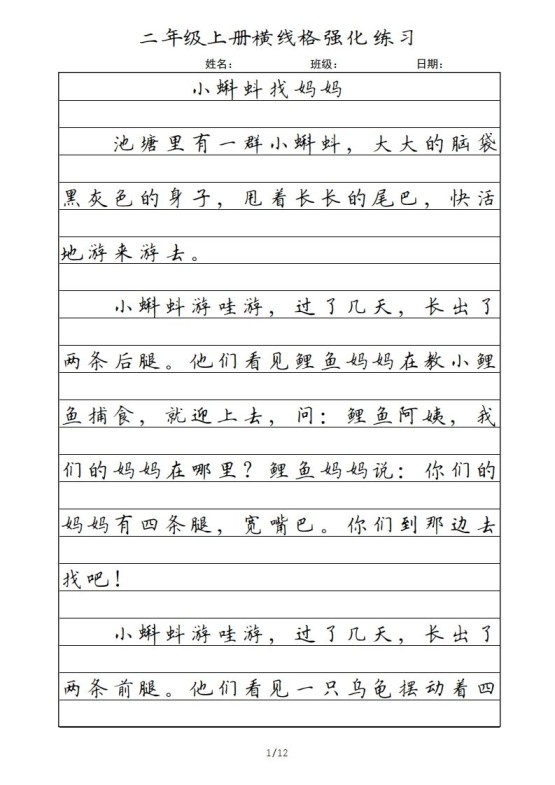 二年级上册横线格强化练习
姓名： 班级： 日期：
小蝌蚪找妈妈
池塘里有一群小蝌蚪，大大的脑袋
黑灰色的身子，甩着长长的尾巴，快活
地游来游去。
小蝌蚪游哇游，过了几天，长出了
两条后腿。他们看见鲤鱼妈妈在教小鲤
鱼捕食，就迎上去，问：鲤鱼阿姨，我
们的妈妈在哪里？鲤鱼妈妈说：你们的
妈妈有四条腿，宽嘴巴。你们到那边去
找吧！
小蝌蚪游哇游，过了几天，长出了
两条前腿。他们看见一只乌龟摆动着四
1/12